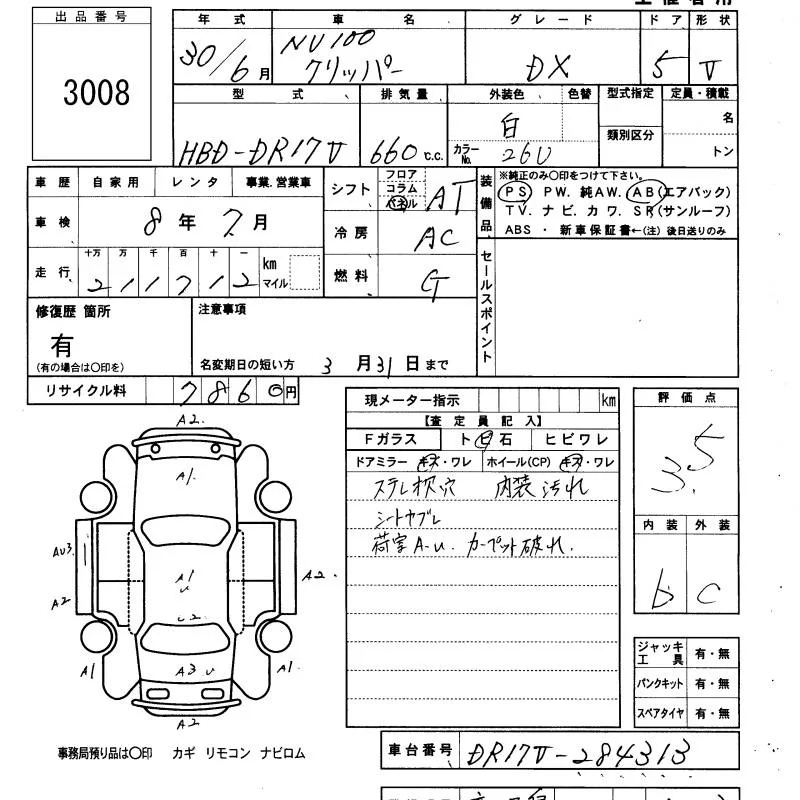 出品番号
3008
年式 車名 グレード ドア 形状
30/6月 NV100 クリッパー DX 5 V
型式 排気量 外装色 色替 型式指定 定員・積載
HBD-DR17V 660 c.c. 白 名
カラーNo. 26U 類別区分 トン
車歴 自家用 レンタ 事業.営業車
車検 8年7月
走行 十万 万 千 百 十 一 km マイル
211712
シフト フロア コラム パネル AT
冷房 AC
燃料 G
装備品 ※純正のみ〇印をつけて下さい。
PS PW. 純AW. AB(エアバック)
TV. ナビ. カワ. SR(サンルーフ)
ABS ・ 新車保証書←(注) 後日送りのみ
セールスポイント
修復歴 箇所 注意事項
有
(有の場合は〇印を) 名変期日の短い方 3月31日まで
リサイクル料 7860円
現メーター指示 km
【査定員記入】
Fガラス ト 日 石 ヒビワレ
ドアミラー キズ・ワレ ホイール(CP) キズ・ワレ
ステレオ枠穴 内装汚れ
シートヤブレ
荷室A-U. カーペット破れ.
評価点
3.5
内装 外装
b C
ジャッキ工具 有・無
パンクキット 有・無
スペアタイヤ 有・無
A2.
A1.
AU3
A1
U
A2.
A2
U2
A1
A3 U
A1.
A2
事務局預り品は〇印 カギ リモコン ナビロム
車台番号 DR17V-284313